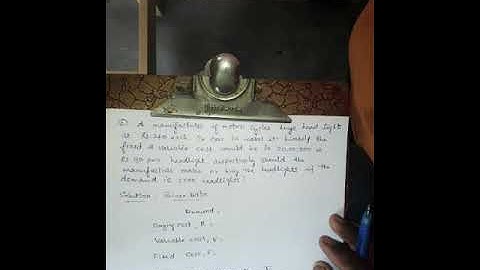 A manufacturer of motor cycles buys head light
at Rs. 240 each. In case he makes it himself the
fixed & variable cost would be Rs 20,00,000 &
Rs 90 per headlight respectively should the
manufacturer make or buy the headlights if the
demand is headlights?
Solution: Given data
Demand:
Buying cost,
Variable cost, V:
Fixed cost, F: